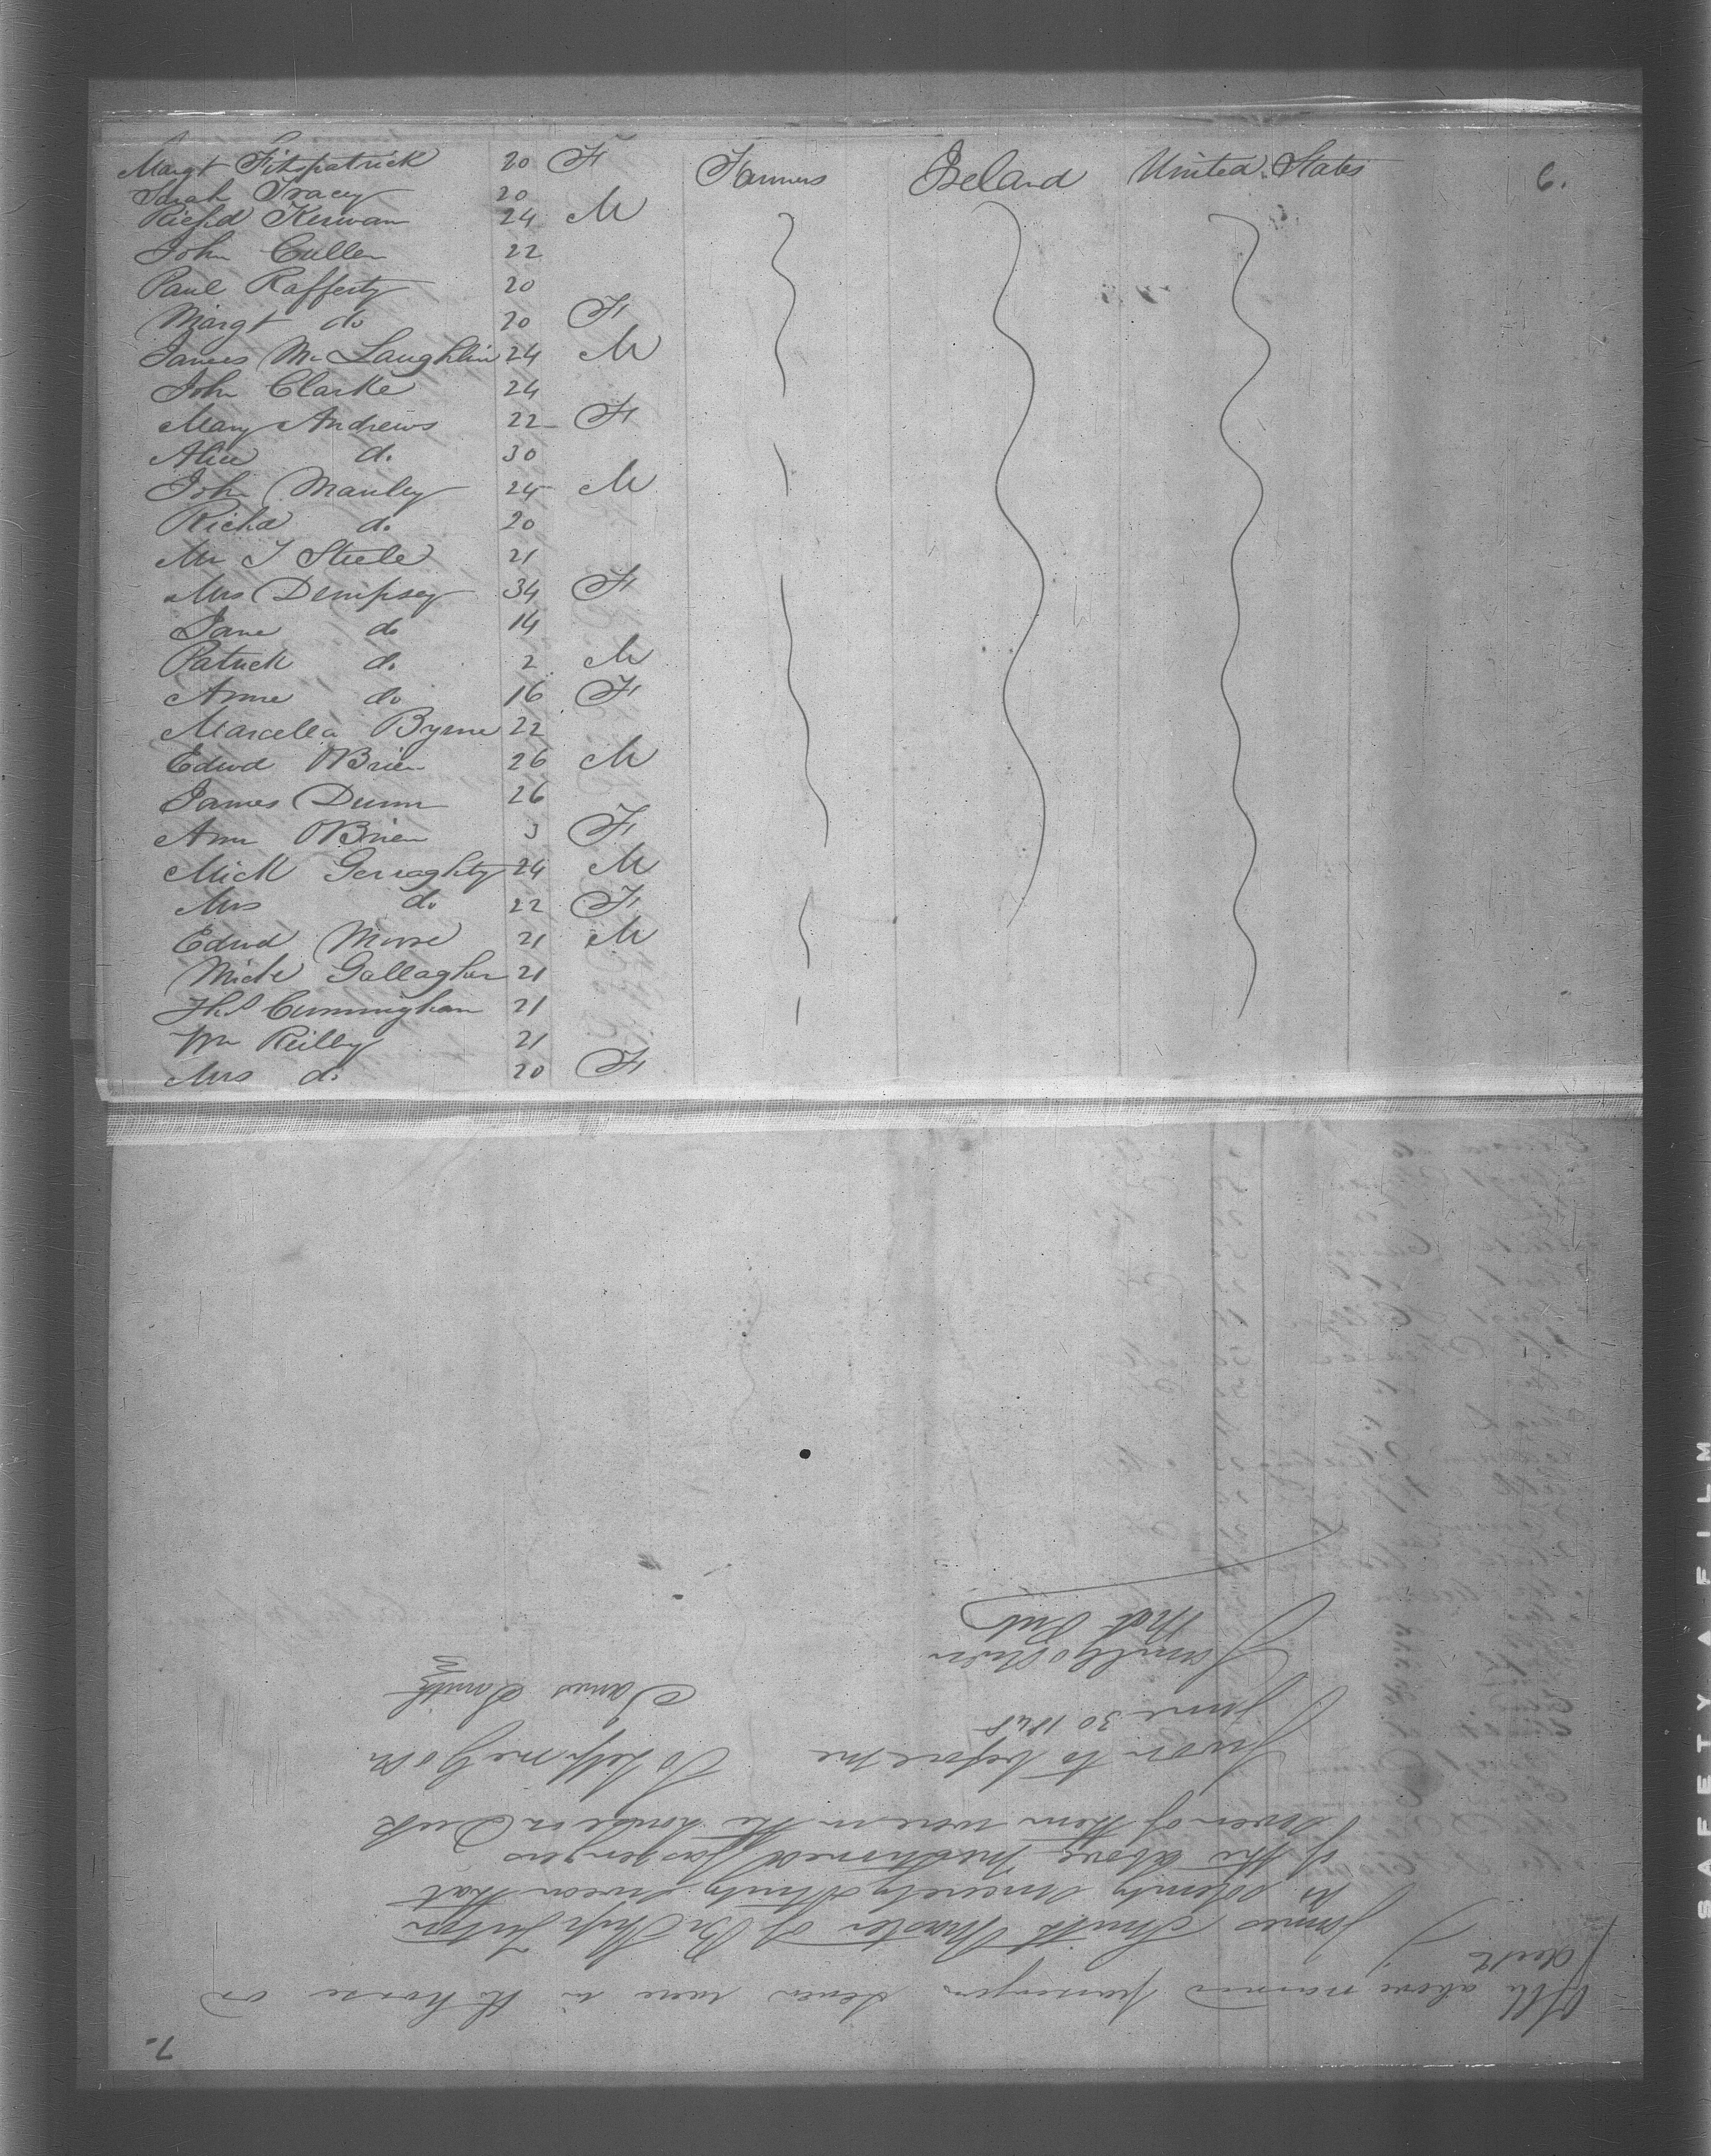 Margt Fitzpatrick 20 F Farmers Ireland United States 6.
Sarah Tracey 20
Richd Kirwan 24 M
John Cullen 22
Paul Rafferty 20
Margt do 20 F
James McLaughlin 24 M
John Clarke 24
Mary Andrews 22 F
Alice do 30
John Manley 24 M
Richd do 20
Mr J Steele 21
Mrs Dempsey 34 F
Jane do 14
Patrick do 2 M
Anne do 16 F
Marcella Byrne 22
Edwd OBrien 26 M
James Dunn 26
Ann OBrien 3 F
Mick Gerraghty 24 M
Mrs do 22 F
Edwd Moore 21 M
Mick Gallagher 21
Cunningham 21
Wm Reilly 21
Mrs do 20 F
7.
Of the above named passengers seven were in the house on
deck
James Smith Master of Br Ship
do solemnly sincerely & truly swear that
of the above mentioned passengers
seven of them were in the house on Deck
Sworn to before me So help me God
June 30 1848
James Smith
SAFETY A FILM